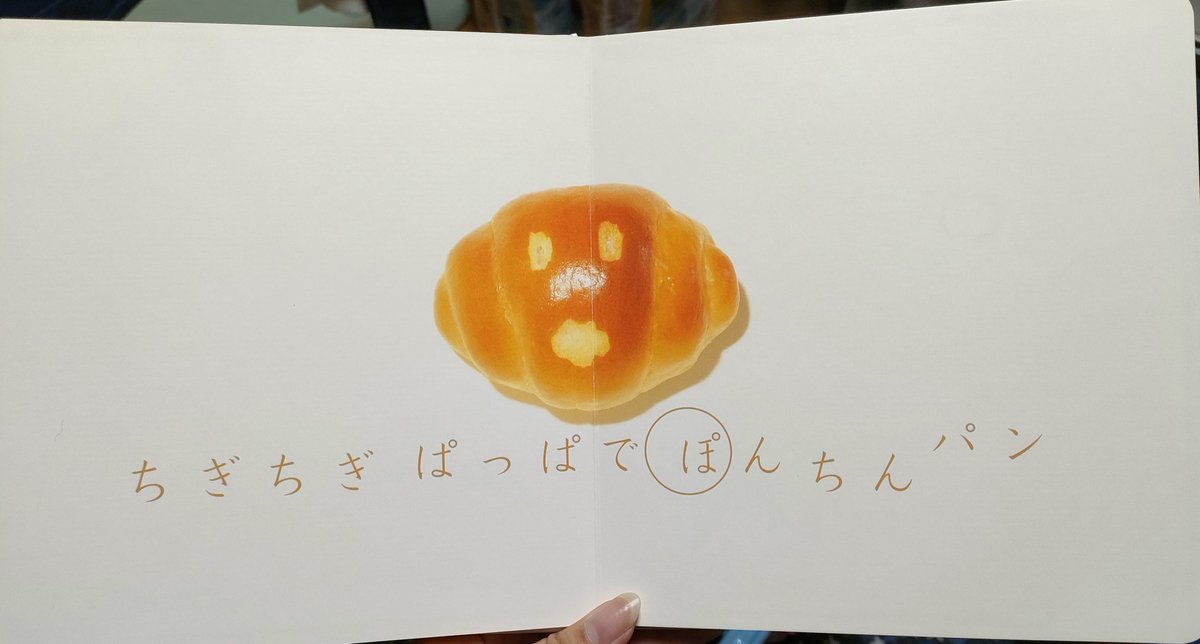 ちぎちぎ ぱっぱで ぽんちんパン